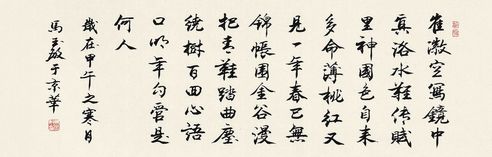 崔徽空寫鏡中
真洛水難傳賦
里神國色自来
多命薄桃紅又
見一年春已無
錦帳圍金谷漫
把青鞋踏曲塵
繞樹百回心語
口明年勾管是
何人
歲在甲午之寒月
馬于京華